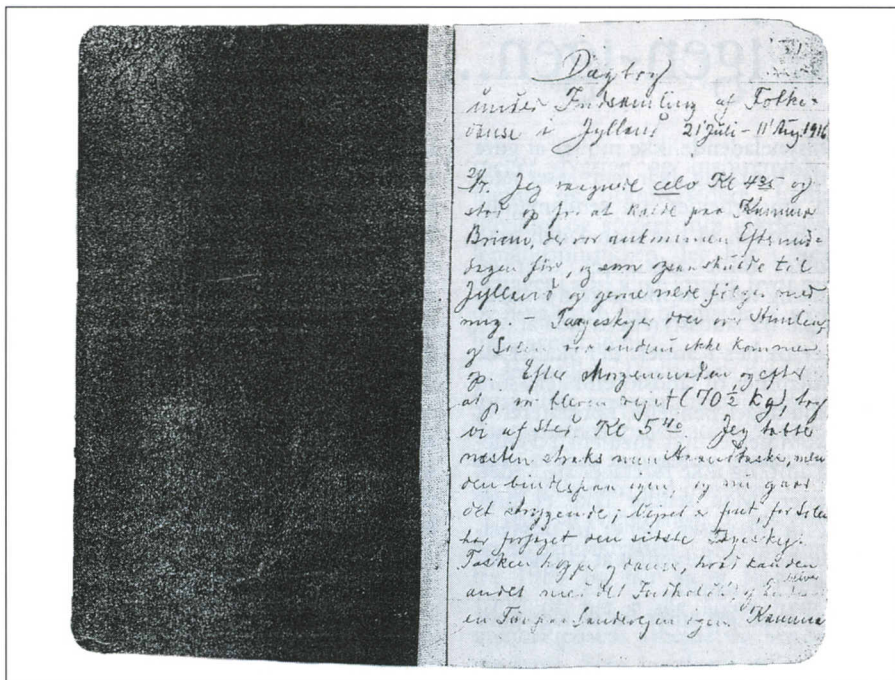 Dagbog
under Indsamling af Folke-
danse i Jylland 21' Juli – 11' Aug. 1916
21/7. Jeg vaagnede selv Kl 4 35 og
stod op for at kalde paa Kamma
Briem, der var ankommen Eftermid-
dagen før, og som ogsaa skulde til
Jylland og gerne vilde følges med
mig. – Taageskyer drev over Himlen,
og Solen var endnu ikke kommen
op. Efter Morgenmaden og efter
at jeg var bleven vejet (70 ½ Kg), tog
vi af Sted Kl 5 40. Jeg tabte
næsten straks min Haandtaske, men
den bindes paa igen, og nu gaar
det strygende; Vejret er fint, for Solen
har forjaget den sidste Tageskey.
Tasken hopper og danser, hvad kan den
andet med det Indhold!, og
en Tur paa Landevejen igen. Kamma